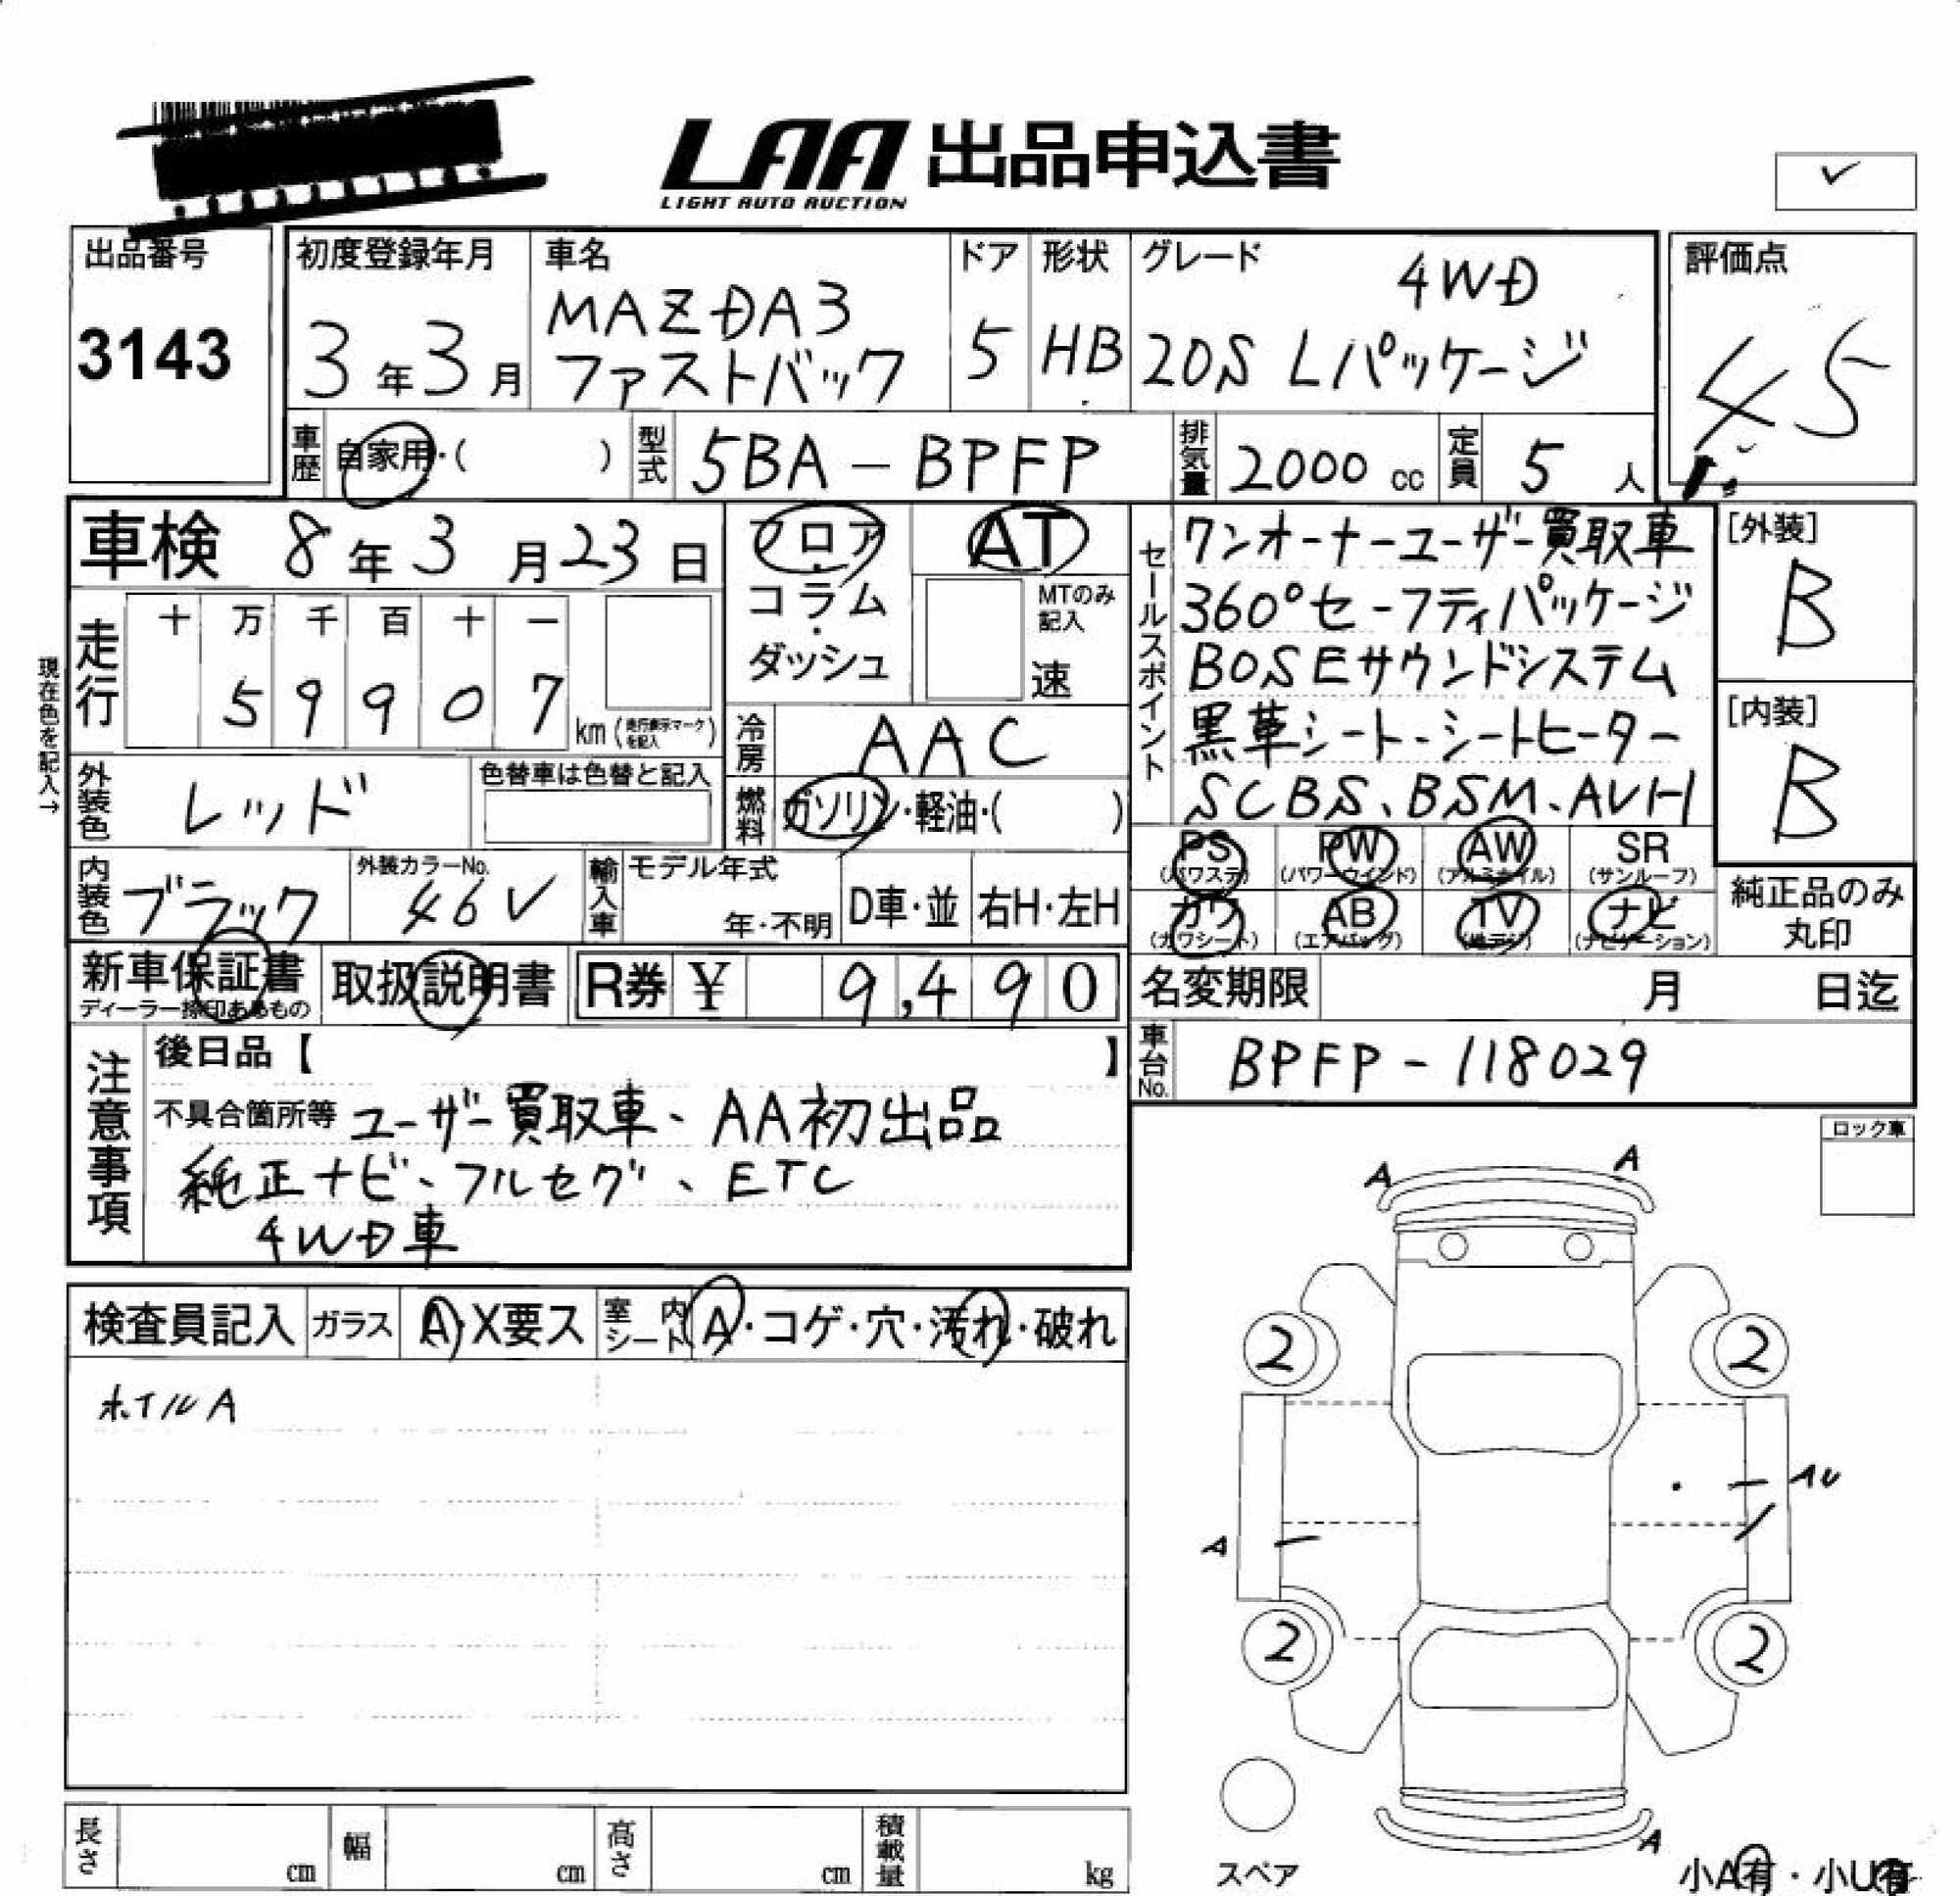 LAA 出品申込書
LIGHT AUTO AUCTION
✓
出品番号
3143
初度登録年月
3年3月
車名
MAZDA3
ファストバック
ドア
5
形状
HB
グレード
4WD
20S Lパッケージ
評価点
4.5
車歴
自家用・( )
型式
5BA-BPFP
排気量
2000 cc
定員
5 人
車検 8年3月23日
現在色を記入→
走行
十 万 千 百 十 一
5 9 9 0 7 km (走行表示マークを記入)
フロア・コラム・ダッシュ
AT
MTのみ記入
速
冷房
AAC
燃料
ガソリン・軽油・( )
外装色
レッド
色替車は色替と記入
内装色
ブラック
外装カラーNo.
46V
輸入車
モデル年式
年・不明
D車・並
右H・左H
セールスポイント
ワンオーナーユーザー買取車
360°セーフティパッケージ
BOSEサウンドシステム
黒革シート、シートヒーター
SCBS、BSM、AVH
[外装]
B
[内装]
B
PS (パワステ)
PW (パワーウインド)
AW (アルミホイル)
SR (サンルーフ)
カワ (カワシート)
AB (エアバッグ)
TV (地デジ)
ナビ (ナビゲーション)
純正品のみ
丸印
新車保証書
ディーラー捺印あるもの
取扱説明書
R券 ¥ 9,490
名変期限 月 日迄
車台No.
BPFP-118029
注意事項
後日品【 】
不具合箇所等 ユーザー買取車、AA初出品
純正ナビ、フルセグ、ETC
4WD車
ロック車
検査員記入
ガラス
A・X要ス
室内シート
A・コゲ・穴・汚れ・破れ
ホイルA
A A
2 2
AU
A
2 2
A
スペア
小A有・小U有
長さ cm
幅 cm
高さ cm
積載量 kg